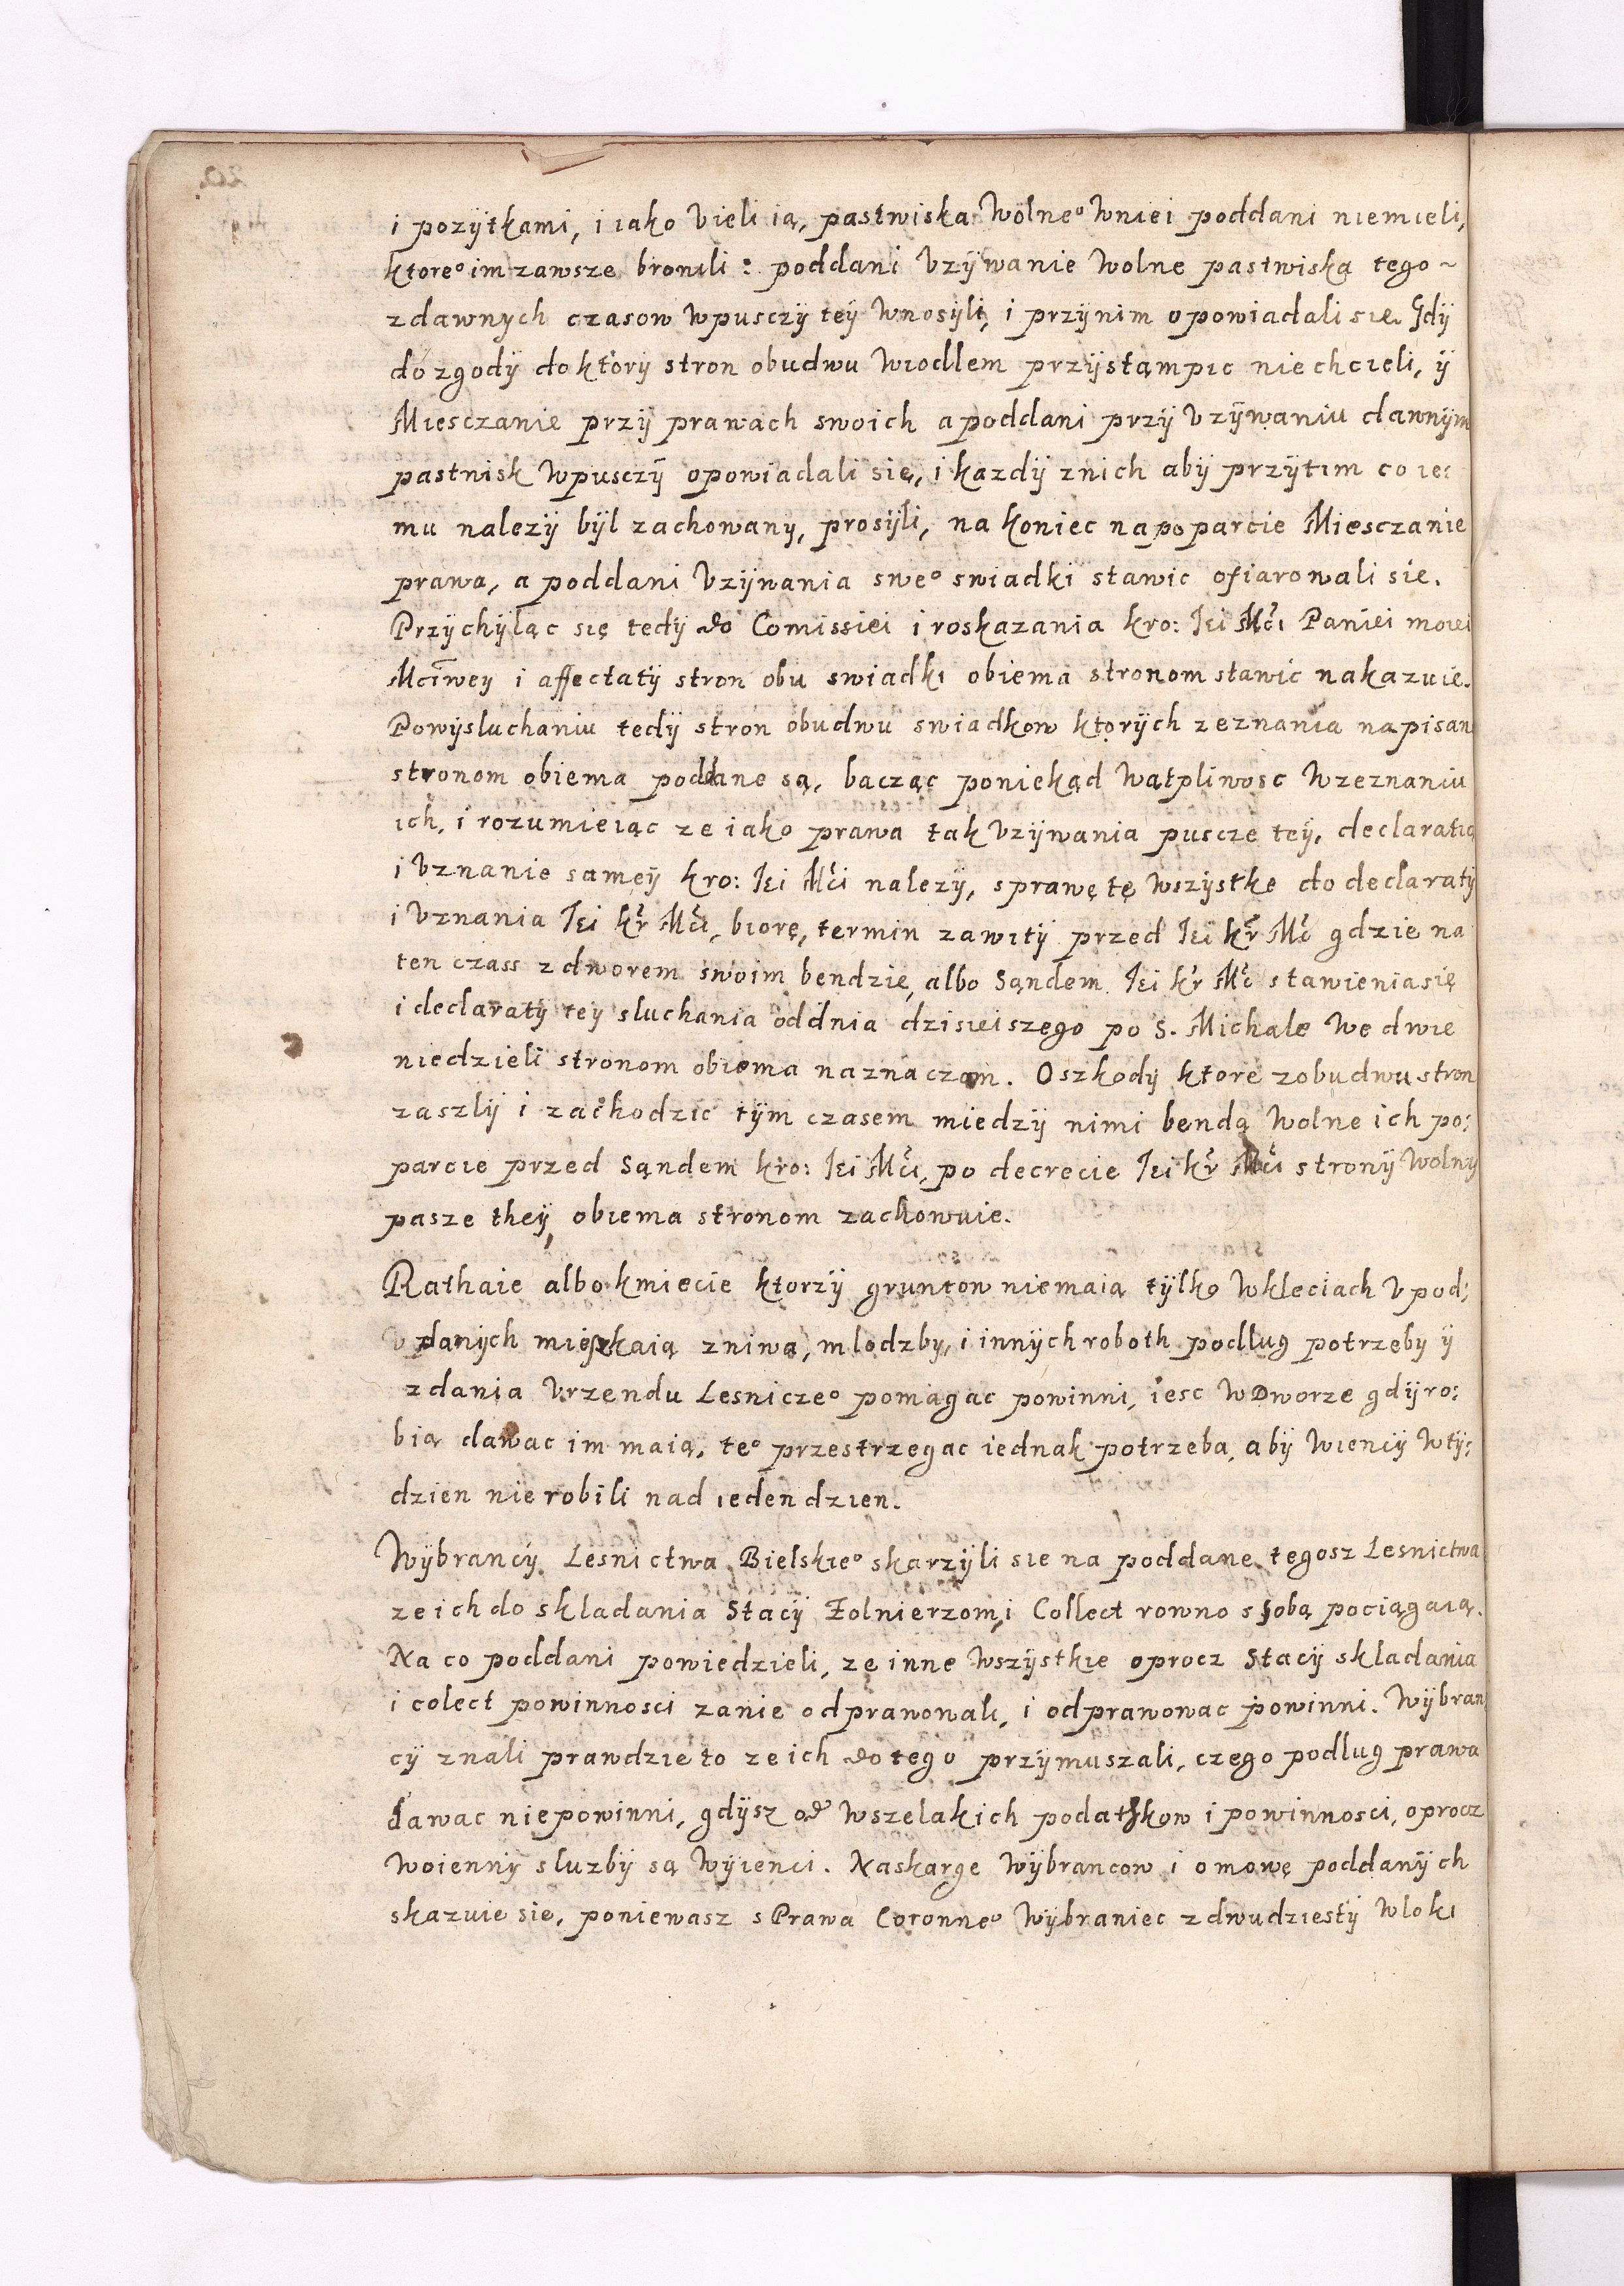 i pozÿtkami, i iako Vieli ią, pastwiska Wolne° Wniei poddani niemieli,
ktore° im zawsze bronili : poddani Vzÿwanie Wolne pastwiska tego ~
zdawnych czasow Wpusczÿ teÿ Wnosÿli, i przÿnim opowiadali sie. Gdÿ
do zgodÿ do ktorÿ stron obudwu Wiodlem przÿstąmpic niechcieli, ÿ
Miesczanie przÿ prawach swoich a poddani przÿ Vzÿwaniu dawnÿm
pastwisk Wpusczÿ opowiadali się, i kazdÿ znich abÿ przÿtim co ie:
mu nalezÿ bÿl zachowany, prosÿli, na koniec na poparcie Miesczanie
prawa, a poddani Vzÿwania swe° swiadki stawic ofiarowali sie.
Przÿchÿląc się tedÿ do Comissiei i roskazania kro: Iei Mći Paniei moiei
Mciwey i affectatÿ stron obu swiadki obiema stronom stawic nakazuie.
Powÿsluchaniu tedÿ stron obudwu swiadkow ktorÿch zeznania napisan
stronom obiema poddane są, bacząc poniekąd Wątpliwosc Wzeznaniu
ich, i rozumieiąc ze iako prawa tak Vzÿwania puscze teÿ, declaratią
i Vznanie sameÿ kro: Iei Mći nalezÿ, sprawę tę Wszÿstke do declaratÿ
i Vznania Iei kr Mći, biorę, termin zawitÿ przed Iei kr Mć gdzie na
ten czass zdworem swoim bendzie, albo Sąndem Iei kr Mć stawienia się
i declaratÿ teÿ sluchania oddnia dzisieiszego po S. Michale We dwie
niedzieli stronom obiema naznaczam. O szkodÿ ktore zobudwu stron
zaszlÿ i zachodzic tÿm czasem miedzÿ nimi bendą Wolne ich po:
parcie przed Sąndem kro: Iei Mći, po decrecie Iei kr Mći stronÿ Wolnÿ
pasze theÿ, obiema stronom zachowuie.
Rathaie albo kmiecie ktorzÿ gruntow niemaią tÿlko Wkleciach V pod:
danÿch mieszkaią zniwa, mlodzby, i innÿch roboth podlug potrzebÿ ÿ
zdania Vrzendu Lesnicze° pomagac powinni, iesc WDworze gdÿ ro:
bią dawac im maią, te° przestrzegac iednak potrzeba, abÿ Wiencÿ Wtÿ:
dzien nie robili nad ieden dzien.
Wÿbrancÿ Lesnictwa Bielskie° skarzÿli sie na poddane tegosz Lesnictwa
ze ich do skladania Stacÿ Zolnierzom, i Collect rowno s sobą pociągaią.
Na co poddani powiedzieli, ze inne Wszÿstkie oprocz Stacÿ skladania
i colect powinnosci zanie odprawowali, i odprawowac powinni. Wÿbran
cÿ znali prawdzie to ze ich do tego przÿmuszali, czego podlug prawa
dawac niepowinni, gdÿsz od Wszelakich podatkow i powinnosci, oprocz
Woiennÿ sluzbÿ są Wÿienci. Naskarge Wÿbrancow i omowę poddanÿch
skazuie sie, poniewasz s Prawa Coronne° Wÿbraniec zdwudziestÿ Wloki